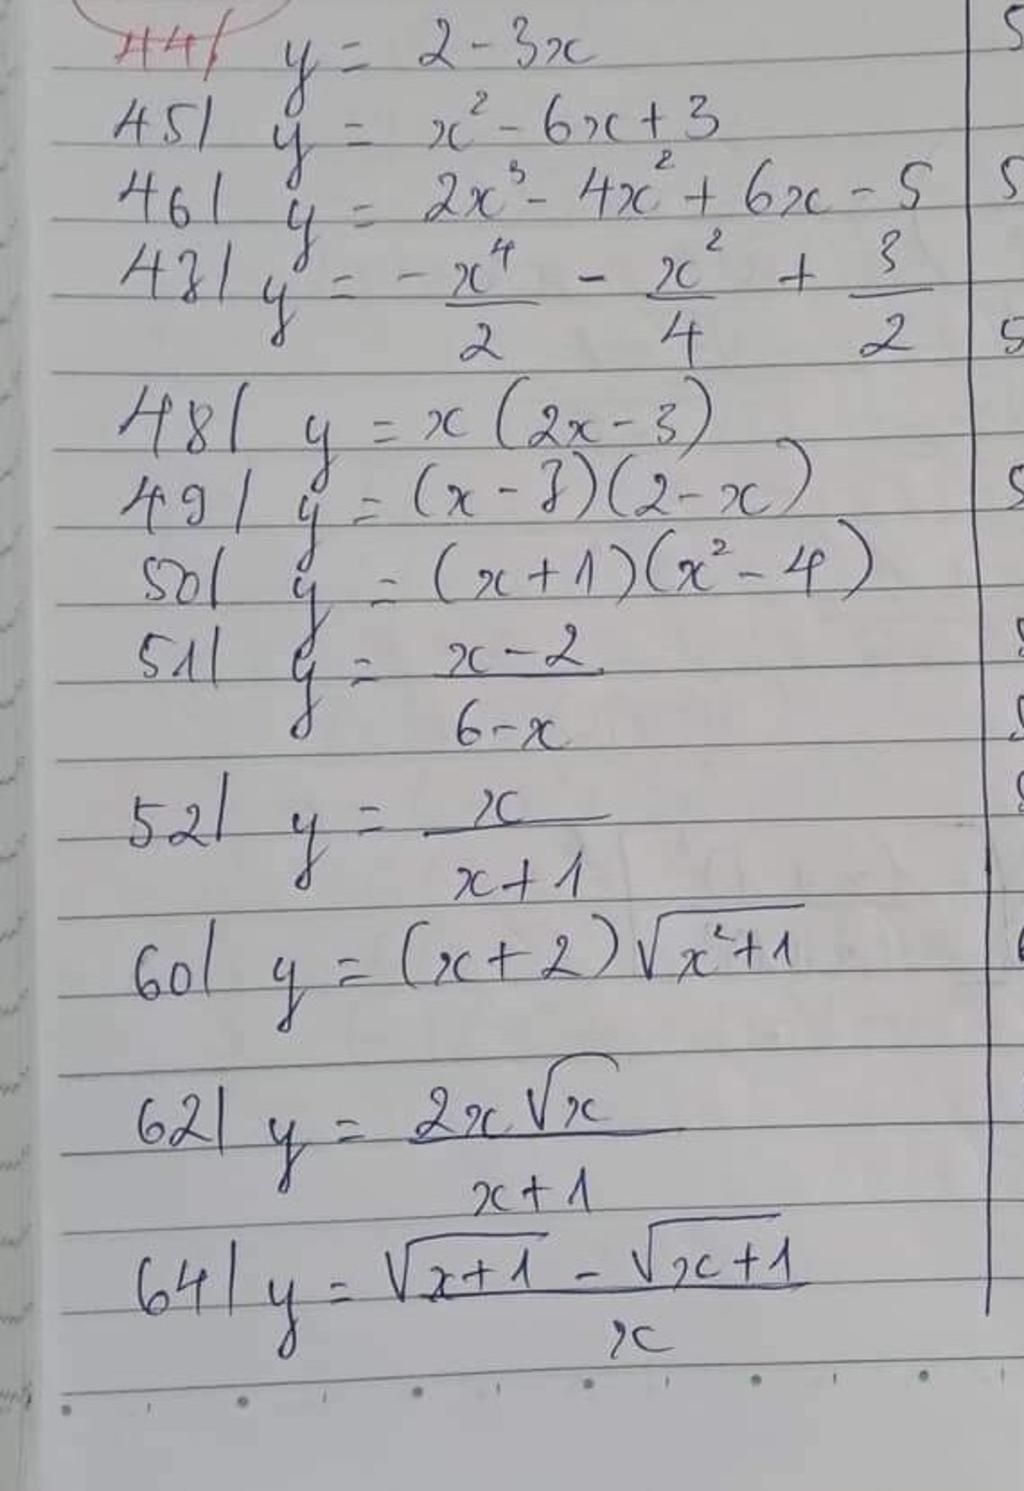 44/ y = 2 - 3x
45/ y = x² - 6x + 3
46/ y = 2x³ - 4x² + 6x - 5
47/ y = -x⁴/2 - x²/4 + 3/2
48/ y = x(2x - 3)
49/ y = (x - 3)(2 - x)
50/ y = (x + 1)(x² - 4)
51/ y = (x - 2)/(6 - x)
52/ y = x/(x + 1)
60/ y = (x + 2)√(x² + 1)
62/ y = 2x√x/(x + 1)
64/ y = (√(x + 1) - √(x + 1))/x